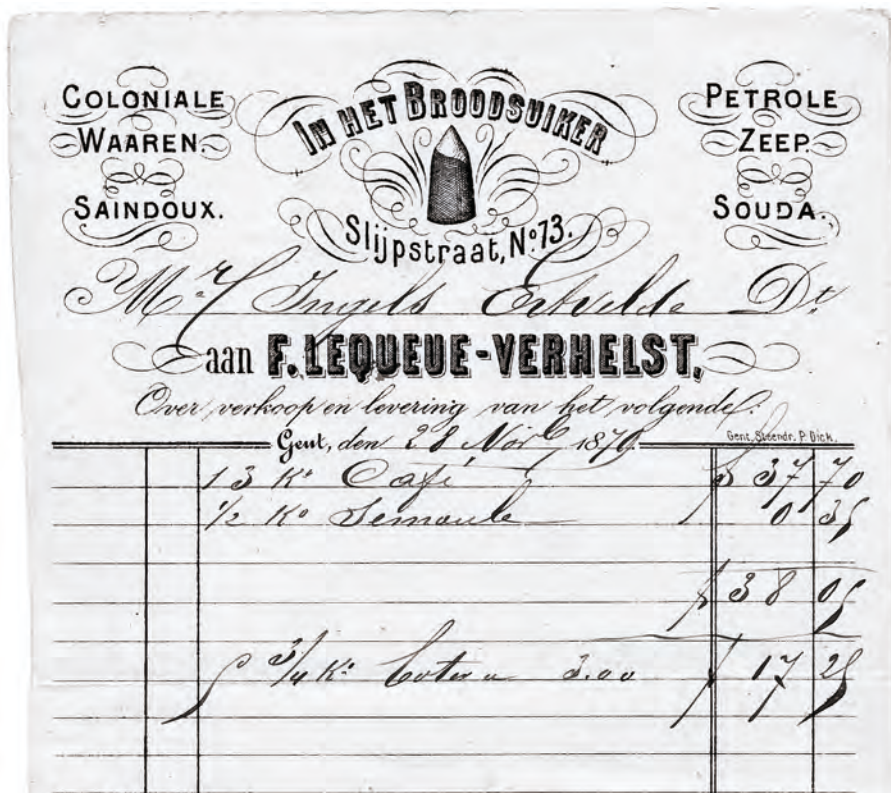 COLONIALE
WAAREN.
SAINDOUX.
IN HET BROODSUIKER
Slijpstraat, No 73.
PETROLE
ZEEP.
SOUDA.
Mr Ingels Ertvelde Dt
aan F. LEQUEUE-VERHELST,
Over verkoop en levering van het volgende:
Gent, den 28 Nov 1879
Gent, Steendr. P. Dick.
13 Ko Café 37 70
1/2 Ko Semoule 0 35
38 05
5 3/4 Ko 3.00 17 25